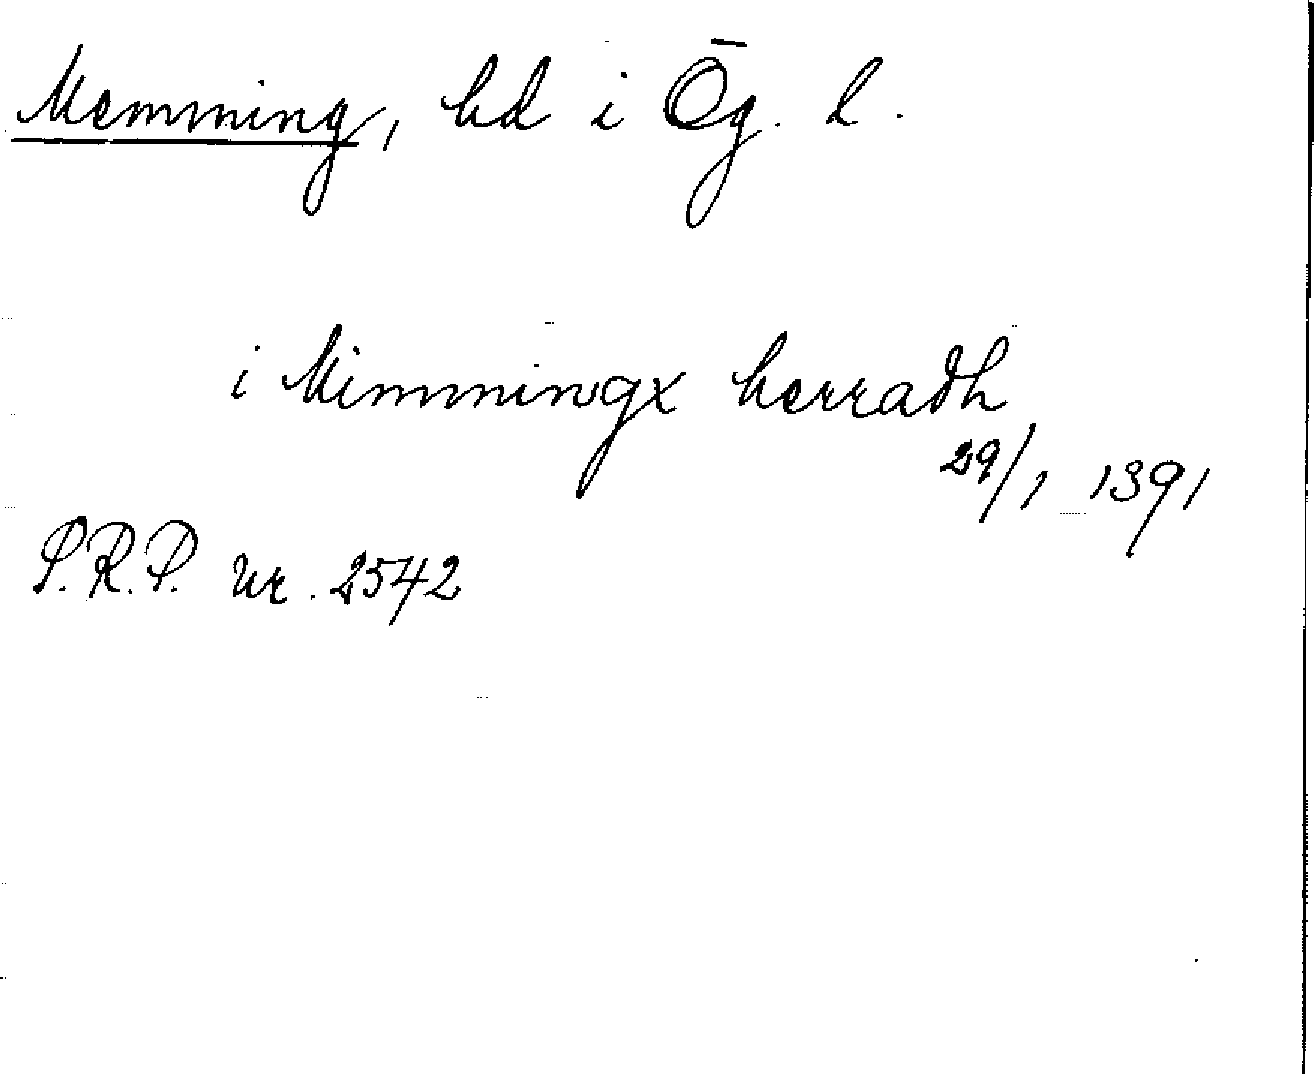 Memming, hd i Ög. l.
i Mimmingx herradh
29/1 1391
S.R.P. nr. 2542